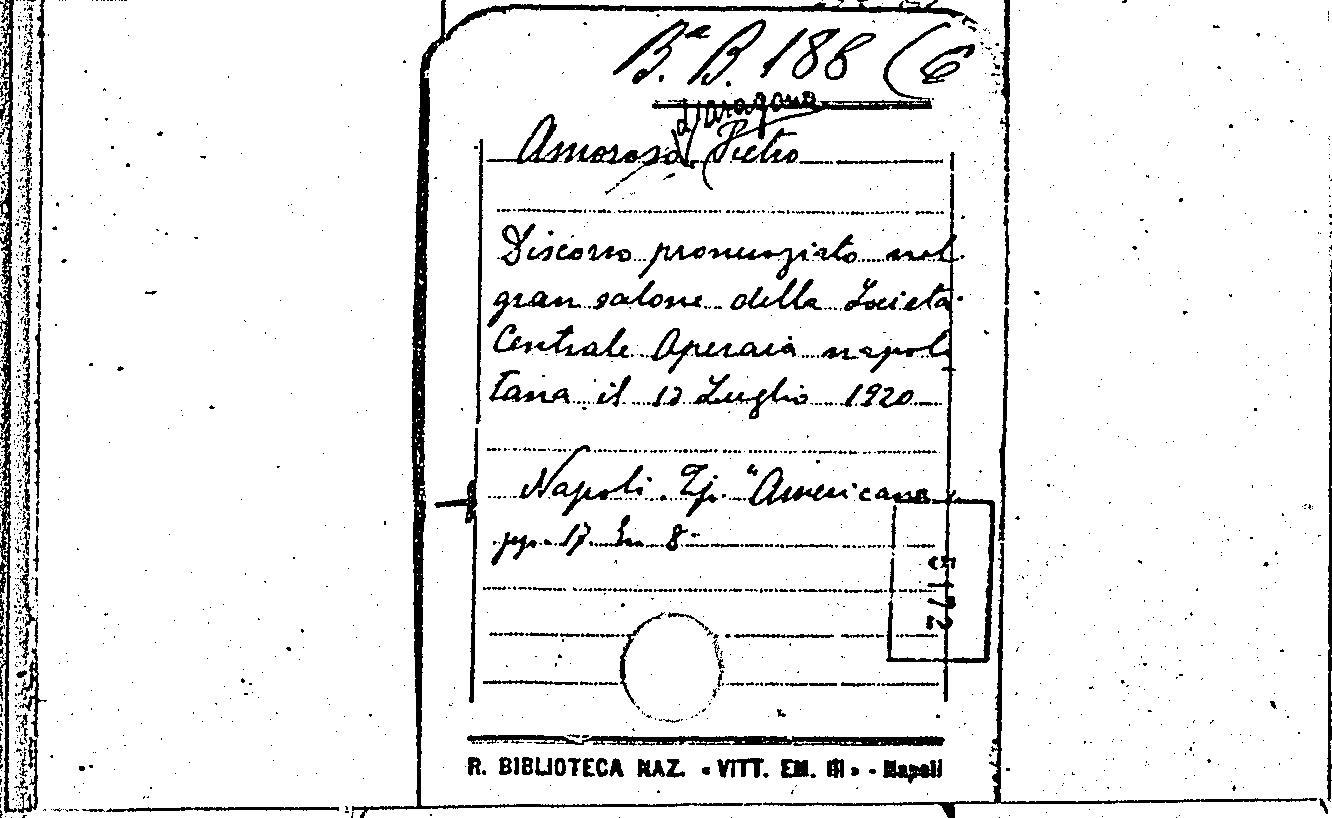 Bª B. 188 (6
d'Aragona
Amoroso Pietro
Discorso pronunziato nel
gran salone della Società
Centrale Operaia napole
tana il 12 Luglio 1920
Napoli. Tip. "Americana"
pp. 17. In 8º
3172
R. BIBLIOTECA NAZ. «VITT. EM. III» - Napoli